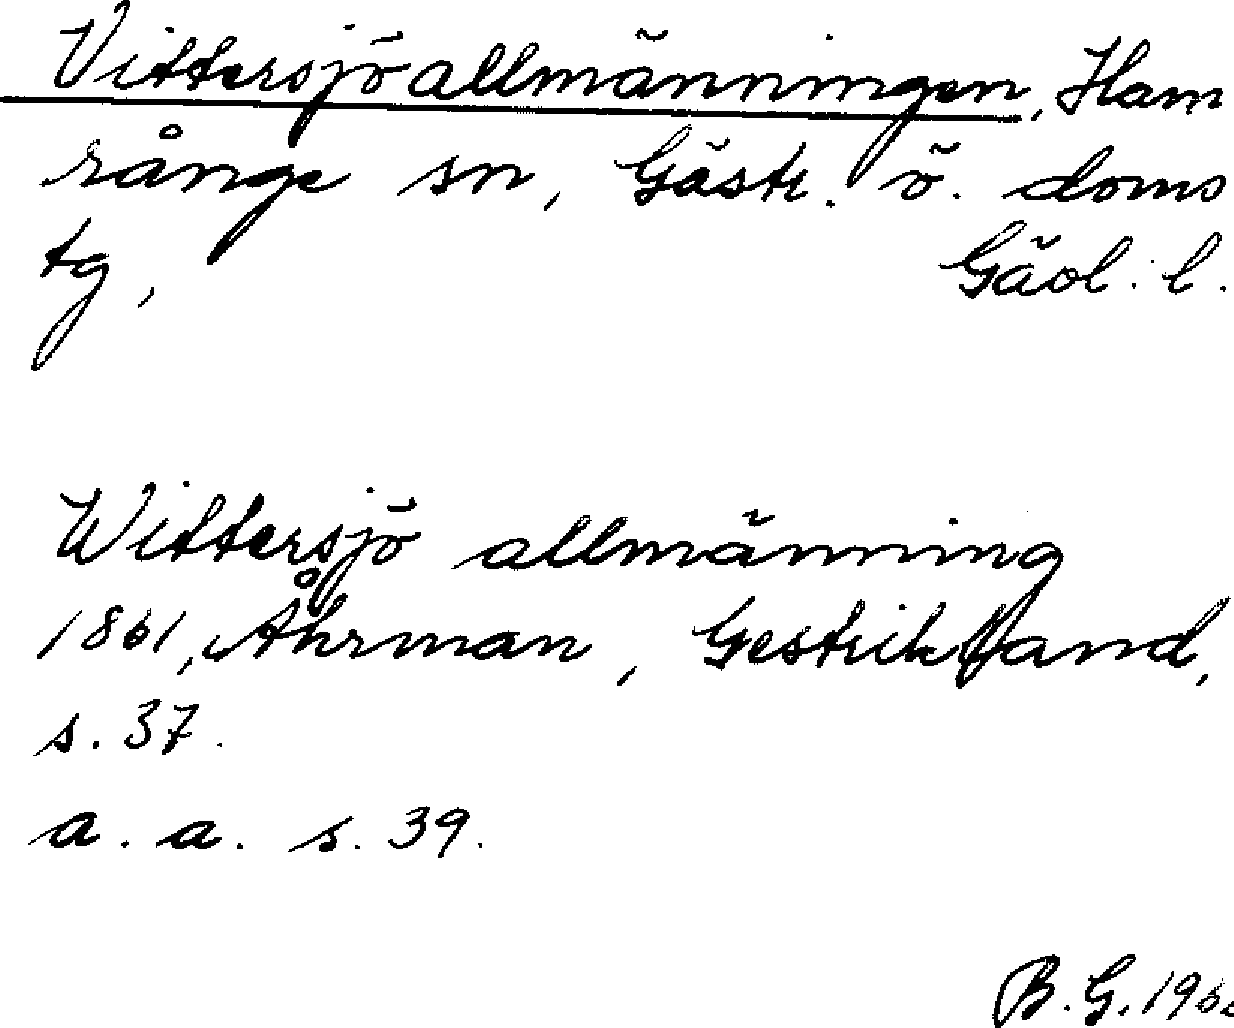 Vittersjöallmänningen, Ham
rånge sn, Gästr. ö. doms
tg, Gävl. l.
Wittersjö allmänning
1861, Åhrman, Gestrikland,
s. 37.
a. a. s. 39.
B. G.